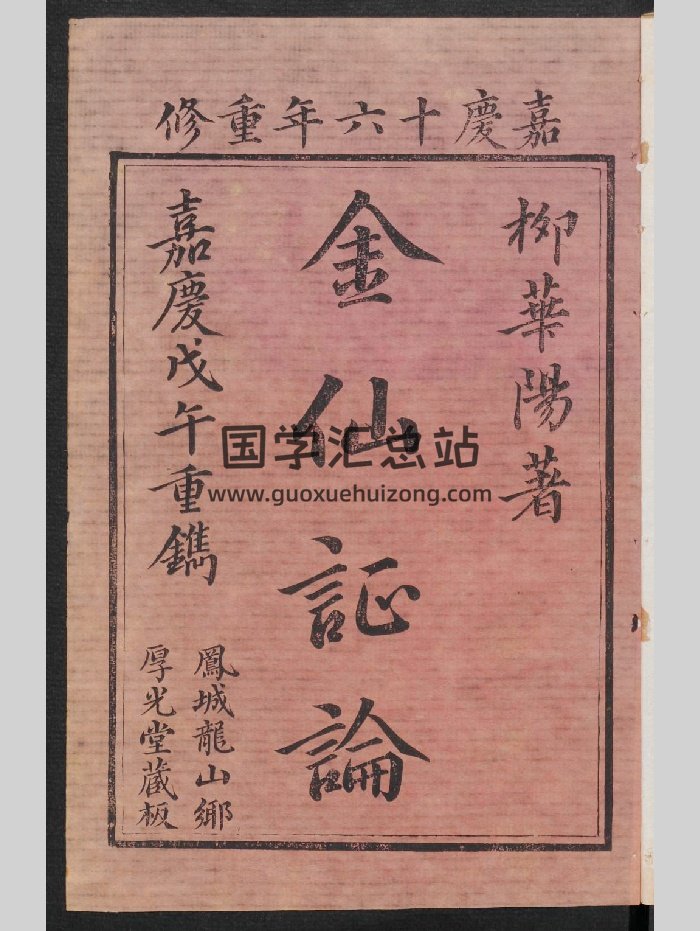 嘉慶十六年重修
柳華陽著
金仙証論
嘉慶戊午重鐫
鳳城龍山鄉
厚光堂藏板
国学汇总站
www.guoxuehuizong.com